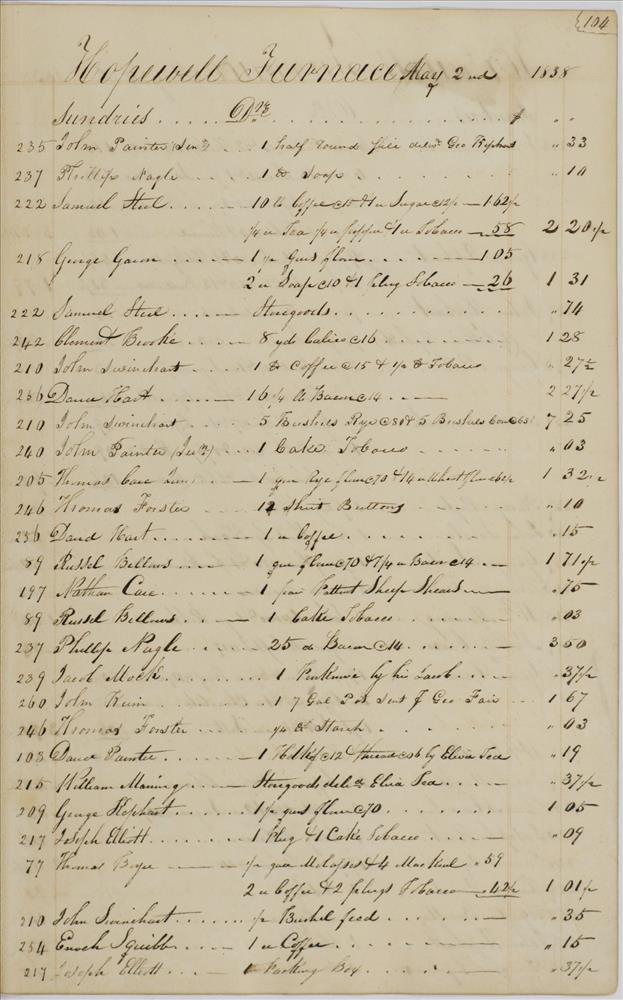 104
Hopewell Furnace May 2nd 1838
Sundries . . . . . Drs . . . . . $ " "
235 John Painter (Senr) . . . 1 half round file delivd Geo Rephart " 33
237 Phillip Nagle . . . . 1 lb Soap . . . . . " 10
222 Samuel Steel . . . . 10 lb Coffee c15 & 1 " Sugar c12½ — 1 62½
¼ " Tea ¼ " pepper & 1 " Tobacco — 58 2 20½
218 George . . . . — 1 ½ qurs flour . . . . — 1 05
2 " Soap c10 & 1 plug Tobacco — 26 1 31
222 Samuel Steel . . . . — Storegoods . . . . . " 74
242 Clement Brooke . . . — 8 yds Calico c16 . . . . 1 28
210 John Swinehart . . . . 1 lb Coffee c15 & ½ lb Tobacco " 27½
236 David Hart . . . — 16 ¼ lb Bacon c14 . . . — 2 27½
210 John Swinehart . . . — 5 Bushels Rye c80 & 5 Bushels Corn c65 7 25
240 John Painter (Junr) . . — 1 Cake Tobacco . . . . " 03
205 Thomas Care Junr . . — 1 qur Rye flour c70 & 14 " Wheat flour 62½ 1 32½
246 Thomas Forster . . . — 12 Shirt Buttons . . . . " 10
236 David Hart . . . . — 1 " Coffee . . . . . " 15
89 Russel Bellows . . . — 1 qur flour c70 & 7¼ " Bacon c14 . — 1 71½
197 Nathan Care . . . — 1 pair Pattent Sheep Shears — " 75
89 Russel Bellows . . . — 1 Cake Tobacco . . . . " 03
237 Phillip Nagle . . . . 25 lb Bacon c14 . . . . 3 50
239 Jacob Mock . . . . . 1 Penknife by his Jacob . . . " 37½
260 John Keim . . . . . 1 7 Gal Pot sent by Geo Fair . . . 1 67
246 Thomas Forster . . . — ¼ lb Starch . . . . . " 03
103 David Painter . . . — 1 Hdkf c12 & thread c06 by Eliza Tea " 19
215 William Maning . . . — Storegoods deld Eliza Tea . . — " 37½
209 George Rephart . . . . 1 ½ qurs flour c70 . . . . 1 05
217 Joseph Elliott . . . . . 1 Plug & 1 Cake Tobacco . . . — " 09
77 Thomas Boyer — ½ gall Molasses & 4 Mackrel " 59
2 " Coffee & 2 plugs Tobacco — " 42½ 1 01½
210 John Swinehart . . . . ½ Bushel feed . . . . " 35
254 Enoch Squibb . . — 1 " Coffee . . . . — " 15
217 Joseph Elliott . . . — 1 Packing Box . . . . " 37½